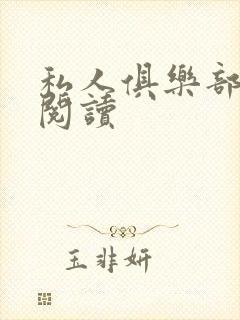 私人俱樂部
閱讀
玉非妍